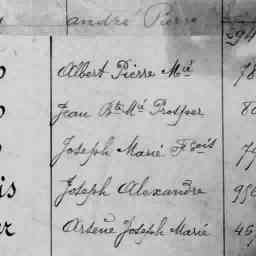 andre Pierre 294
Albert Pierre Mié 78
Jean Bte Mé Prosper 80
Joseph Marié Fçois 79
is Joseph Alexandre 950
er Arsène Joseph Marié 459